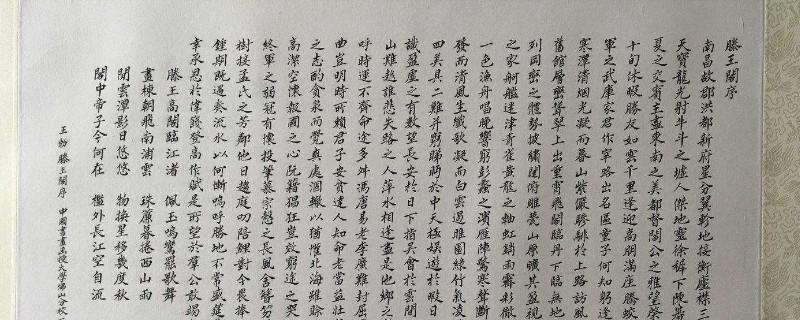 滕王閣序
南昌故郡洪都新府星分翼軫地接衡廬襟三
天寶龍光射牛斗之墟人傑地靈徐孺下陳蕃
夏之交賓主盡東南之美都督閻公之雅望棨
十旬休暇勝友如雲千里逢迎高朋滿座騰蛟
軍之武庫家君作宰路出名區童子何知躬逢
寒潭清烟光凝而暮山紫儼驂騑於上路訪風
舊館層巒聳翠上出重霄飛閣臨丹下臨無地
列岡巒之體勢披繡闥俯雕甍山原曠其盈視
之家舸艦迷津青雀黃龍之軸虹銷雨霽彩徹
一色漁舟唱晚響窮彭蠡之濱雁陣驚寒聲斷
發而清風生纖歌凝而白雲遏睢園綠竹氣凌
四美具二難并窮睇眄於中天極娛遊於暇日
識盈虛之有數望長安於日下指吳會於雲間
山難越誰悲失路之人萍水相逢盡是他鄉之
呼時運不齊命途多舛馮唐易老李廣難封屈
曲豈明時所賴君子安貧達人知命老當益壯
之志酌貪泉而覺爽處涸轍以猶懽北海雖賒
高潔空懷報國之心阮籍猖狂豈效窮途之哭
終軍之弱冠有懷投筆慕宗愨之長風舍簪笏
樹接孟氏之芳鄰他日趨庭叨陪鯉對今晨捧
鍾期既遇奏流水以何慚嗚呼勝地不常盛筵
幸承恩於偉餞登高作賦是所望於羣公敢竭
滕王高閣臨江渚 佩玉鳴鸞罷歌舞
畫棟朝飛南浦雲 珠簾暮捲西山雨
閒雲潭影日悠悠 物換星移幾度秋
閣中帝子今何在 檻外長江空自流
王勃 滕王閣序 中國書畫函授大學佛山分校